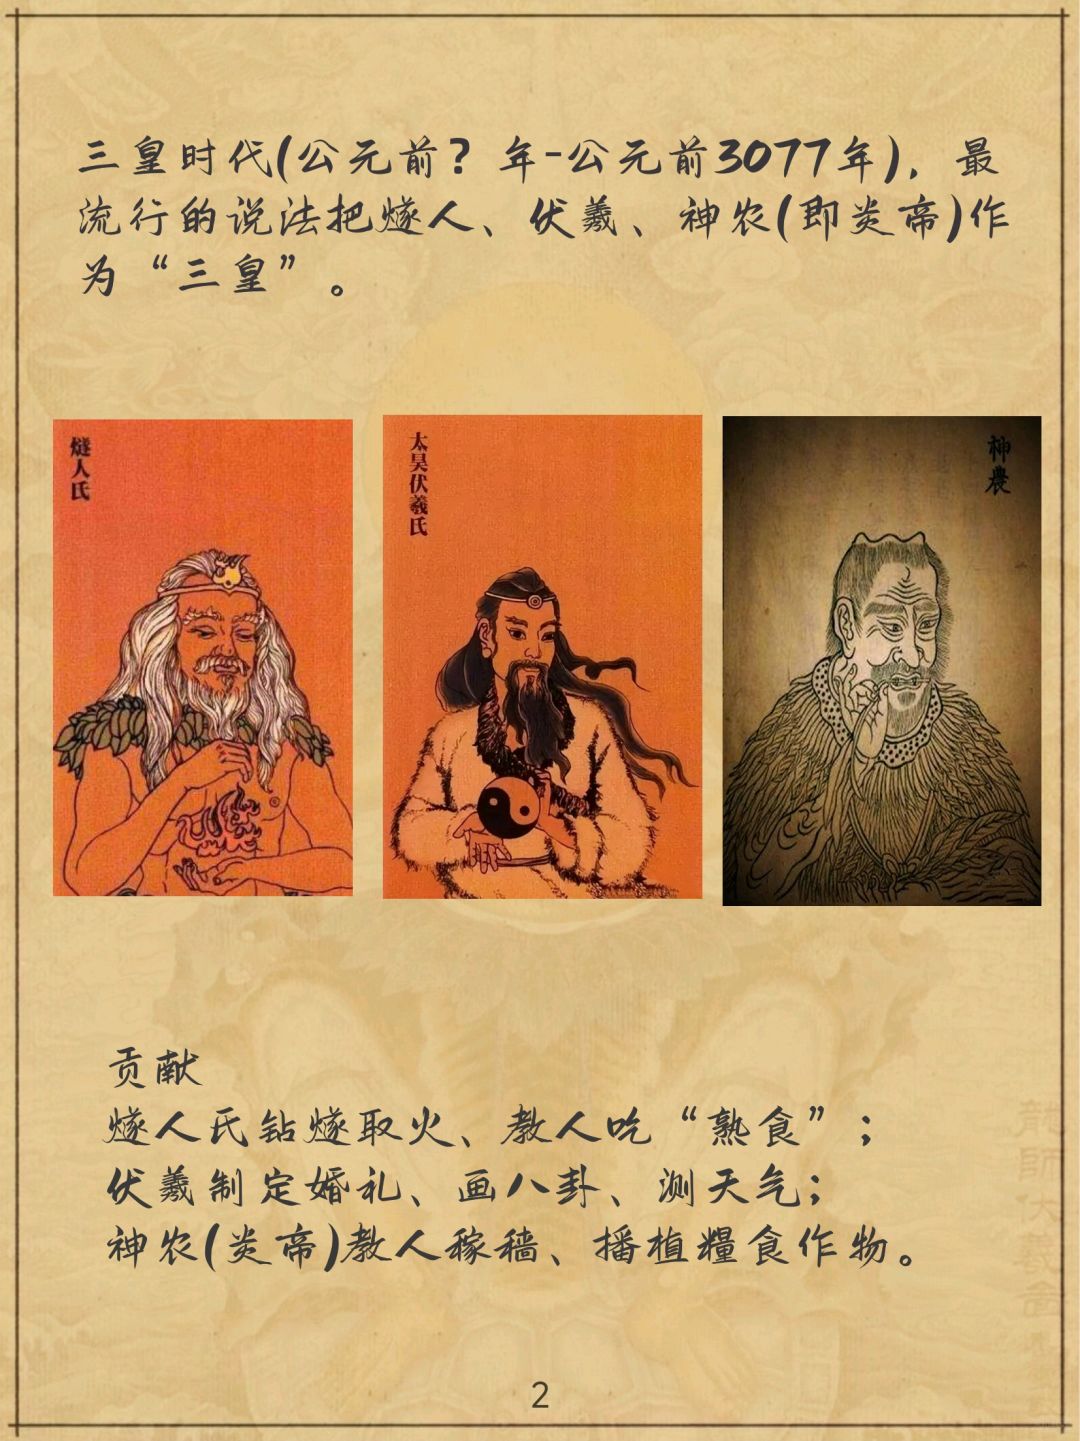 三皇时代(公元前？年-公元前3077年)，最
流行的说法把燧人、伏羲、神农(即炎帝)作
为“三皇”。
燧人氏
太昊伏羲氏
神農
贡献
燧人氏钻燧取火、教人吃“熟食”；
伏羲制定婚礼、画八卦、测天气；
神农(炎帝)教人稼穑、播植糧食作物。
2